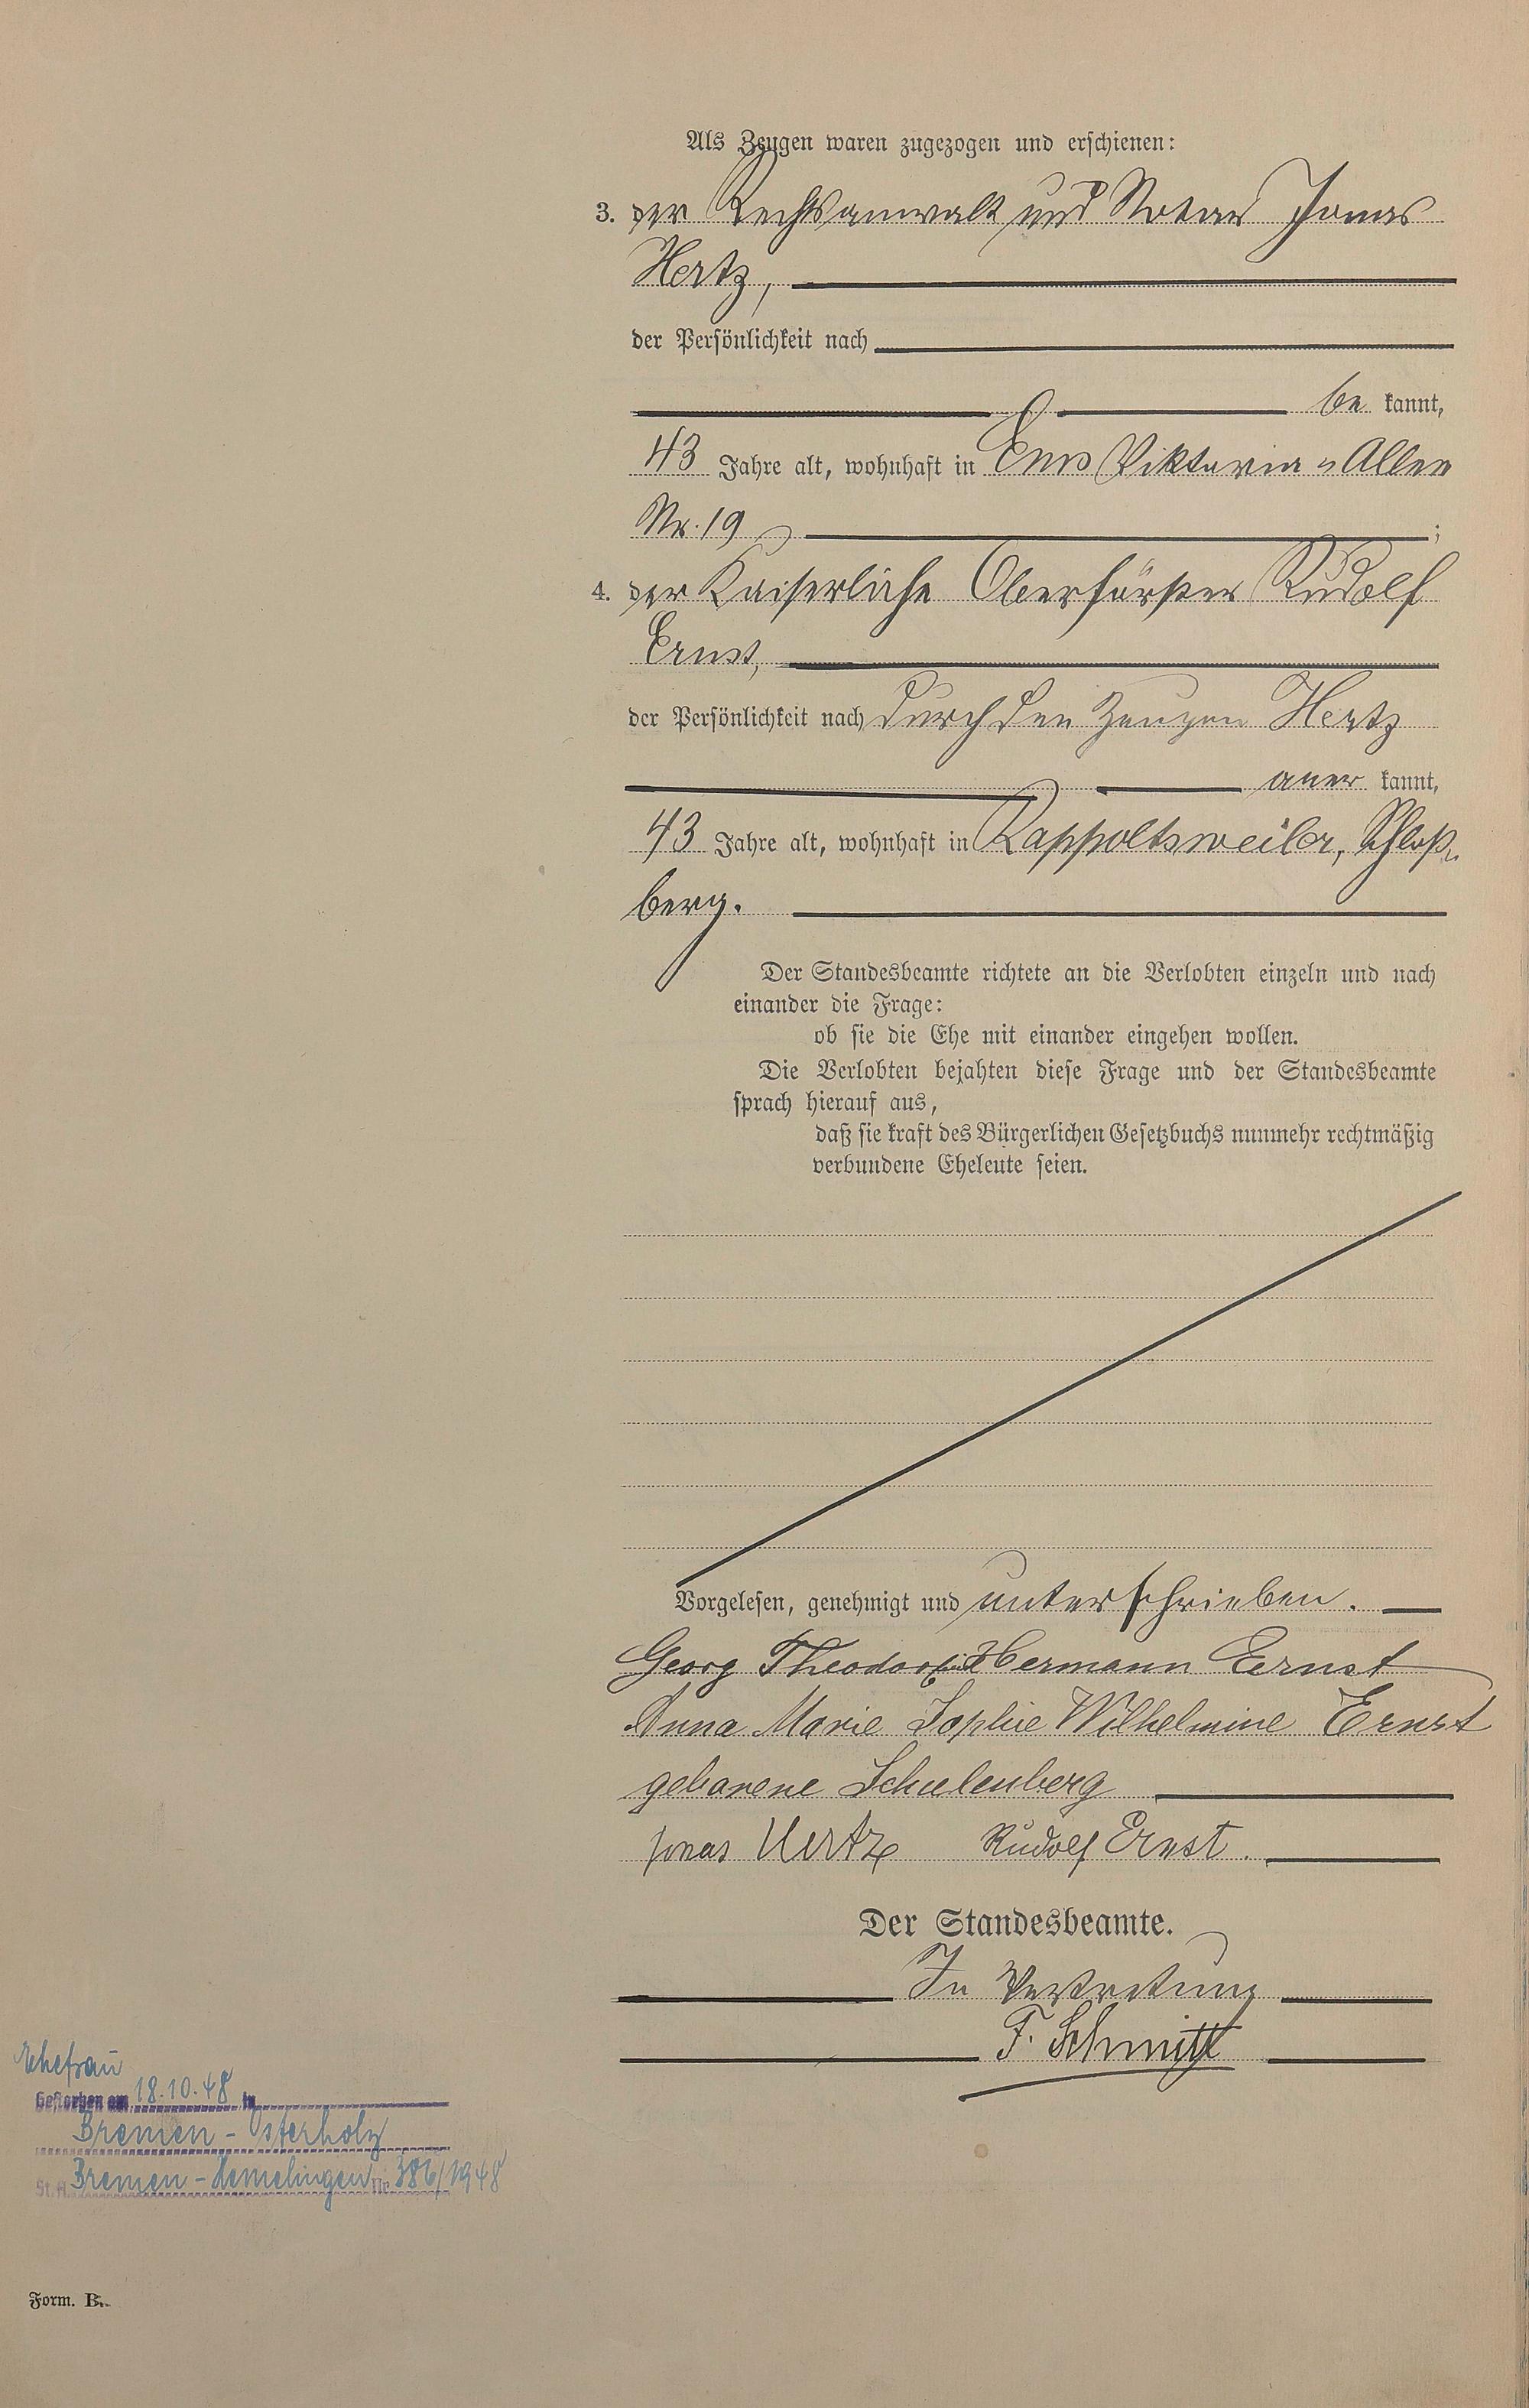 Als Zeugen waren zugezogen und erschienen:
3. der Rechtsanwalt und Notar Jonas
Hertz,
der Persönlichkeit nach
be kannt,
43 Jahre alt, wohnhaft in Ems Viktoria-Allee
Nr. 19 ;
4. der Kaiserliche Oberförster Rudolf
Ernst,
der Persönlichkeit nach durch den Zeugen Hertz
aner kannt,
43 Jahre alt, wohnhaft in Rappoltsweiler, Schloß-
berg.
Der Standesbeamte richtete an die Verlobten einzeln und nach
einander die Frage:
ob sie die Ehe mit einander eingehen wollen.
Die Verlobten bejahten diese Frage und der Standesbeamte
sprach hierauf aus,
daß sie kraft des Bürgerlichen Gesetzbuchs nunmehr rechtmäßig
verbundene Eheleute seien.
Vorgelesen, genehmigt und unterschrieben.
Georg Theodor Hermann Ernst
Anna Marie Sophie Wilhelmine Ernst
geborene Schulenberg
Jonas Hertz Rudolf Ernst.
Der Standesbeamte.
In Vertretung
F. Schmitt
Ehefrau
Gestorben am 18.10.48 in
Bremen-Osterholz
St.A. Bremen-Hemelingen Nr. 386/1948
Form. B.